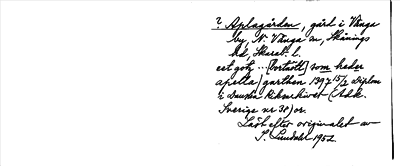 ? Aplagården, gård i Vånga
by, N. Vånga sn, Skånings
hd, Skarab. l.
est götz ... [bortnött] som heder
apella/garthen 1397 15/2 diplom
i danska Riksarkivet (Adk.
Sverige nr 38) or.
Läst efter originalet av
S. Lundahl 1952